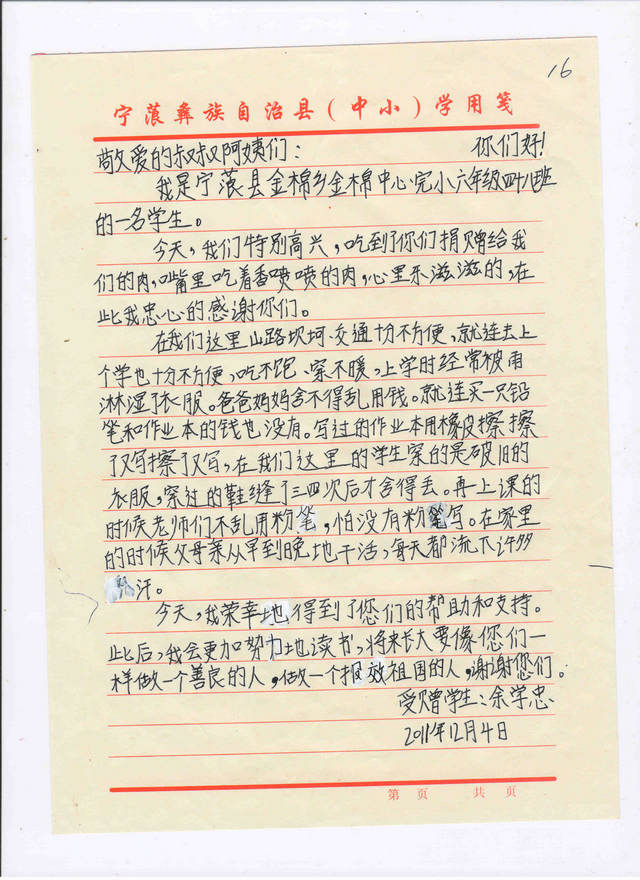 16
宁蒗彝族自治县（中小）学用笺
敬爱的叔叔阿姨们： 你们好！
我是宁蒗县金棉乡金棉中心完小六年级四十八班
的一名学生。
今天，我们特别高兴，吃到了你们捐赠给我
们的肉，嘴里吃着香喷喷的肉，心里乐滋滋的，在
此我忠心的感谢你们。
在我们这里山路坎坷、交通十分不方便，就连去上
个学也十分不方便、吃不饱、穿不暖，上学时经常被雨
淋湿了衣服。爸爸妈妈舍不得乱用钱。就连买一只铅
笔和作业本的钱也没有。写过的作业本用橡皮擦擦
了又写擦了又写，在我们这里的学生穿的是破旧的
衣服，穿过的鞋缝了三四次后才舍得丢。再上课的
时候老师们不乱用粉笔，怕没有粉笔写。在家里
的时候父母亲从早到晚地干活，每天都流下许多
汗。
今天，我荣幸地得到了您们的帮助和支持。
此后，我会更加努力地读书，将来长大要像您们一
样做一个善良的人，做一个报效祖国的人，谢谢您们。
受赠学生：余学忠
2011年12月4日
第 页 共 页